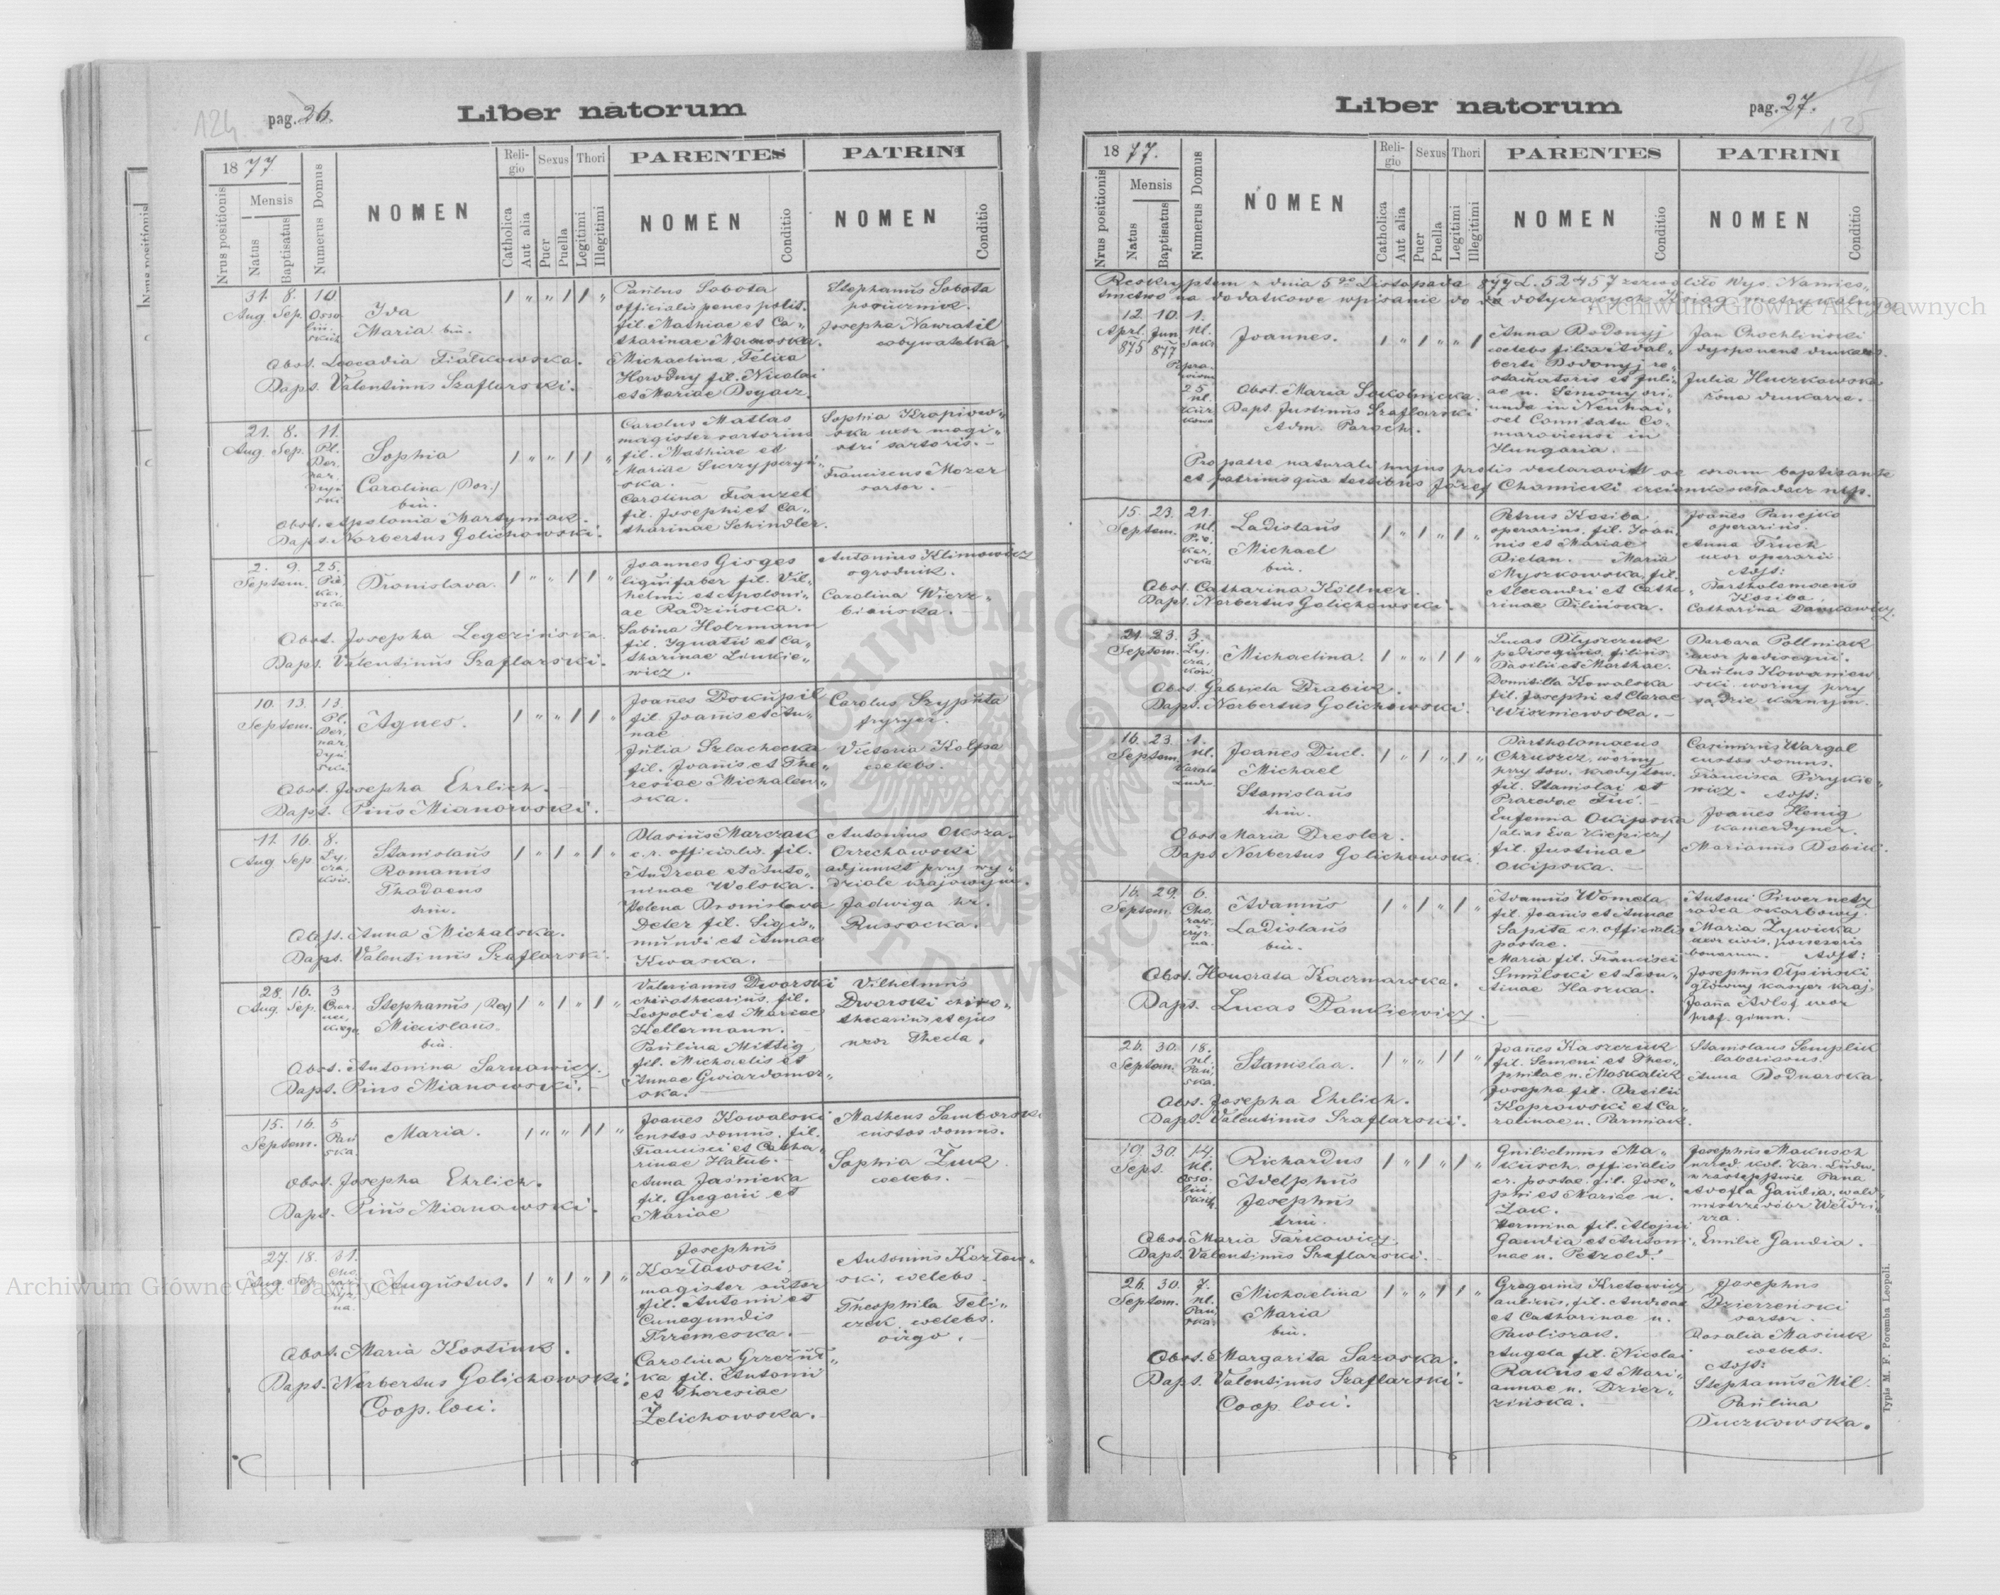 124
pag. 26.
Liber natorum
1877
Nrus positionis
Mensis
Natus
Baptisatus
Numerus Domus
NOMEN
Religio
Catholica
Aut alia
Sexus
Puer
Puella
Thori
Legitimi
Illegitimi
PARENTES
NOMEN
Conditio
PATRINI
NOMEN
Conditio
31. Aug
8. Sep.
10.
Maria bin.
Obst. Leocadia Fiałkowska.
Bapt. Valentinus Szaflarski.
Paulus Sobota
officialis penes polit.
fil. Mathiae et Ca-
tharinae
Michaelina Felica
fil. Nicolai
et Mariae
Stephanus Sobota
porucznik.
Josepha Nawratil
obywatelka.
21. Aug
8. Sep.
11. Pl. Ber-
nar-
dyń
ski
Sophia
Carolina (Bor.)
bin.
Obst. Apolonia Martyniak.
Bapt. Norbertus Golichowski.
Carolus Matlas
magister sartorius
fil. Mathiae et
Mariae Skrzypczyń-
ska.
Carolina Franzel
fil. Josephi et Ca-
tharinae Schindler.
Sophia Kropiow-
ska uxor magi-
stri sartoris.
Franciscus Mozer
sartor.
2. Septem.
9.
25. Pie-
kar-
ska
Bronislava.
Obst. Josepha Legezińska.
Bapt. Valentinus Szaflarski.
Joannes Gisges
lignifaber fil. Vil-
helmi et Apoloni-
ae Radzińska.
Sabina Holzmann
fil. Ignatii et Ca-
tharinae Linkie-
wicz.
Antonius Klimowicz
ogrodnik.
Carolina Wierz-
biańska.
10. Septem.
13.
13. Pl.
Ber-
nar-
dyń
ski
Agnes.
Obst. Josepha Ehrlich.
Bapt. Pius Mianowski.
Joañes Dokupil
fil. Joañis et An-
nae
Julia Szlachecka
fil. Joañis et The-
resiae Michalew-
ska.
Carolus Szypuła
fryzyer.
Victoria Kolpa
coelebs.
11. Aug
16. Sep
8. Ły-
cza-
kow.
Stanislaus
Romanus
Thadaeus
trin.
Anna Michalska.
Bapt. Valentinus Szaflarski.
Blasius Marczak
c.r. officialis. fil.
Andreae et Anto-
ninae Wolska.
Helena Bronislava
Deter fil. Sigis-
mundi et Annae
Kwaska.
Antonius Oksza.
Orzechowski
adjunkt przy wy-
dziale krajowym.
Jadwiga hr.
Russocka.
28. Aug.
16. Sep.
3
Stephanus
Miecislaus.
bin.
Obst. Antonina Sarnowicz.
Bapt. Pius Mianowski.
Valerianus Dworski
chirothecarius. fil.
Leopoldi et Mariae
Kellermann.
Paulina Mittig
fil. Michaelis et
Annae Gwiazdomor-
ska.
Vilhelmus
Dworski chiro-
thecarius et ejus
uxor Theda.
15. Septem.
16.
5 Pań
ska.
Maria.
Obst. Josepha Ehrlich.
Bapt. Pius Mianowski.
Joañes Kowalski
custos domus. fil.
Francisci et Catha-
rinae Hałub.
Anna Jaśnicka
fil. Gregorii et
Mariae
Matheus Samborski
custos domus.
Sophia Żuk
coelebs.
27. Aug
18. Sep.
31.
Augustus.
Obst. Maria Kostiuk.
Bapt. Norbertus Golichowski.
Coop. loci.
Josephus
Kozłowski,
magister sutor
fil. Antonii et
Cunegundis
Trzemeska.
Carolina Grzesiut-
ka fil. Antonii
et Theresiae
Żelichowska.
Antonius Kozłow-
ski, coelebs.
Theophila Feli-
czek coelebs.
virgo.
pag. 27.
125
Liber natorum
1877.
Nrus positionis
Mensis
Natus
Baptisatus
Numerus Domus
NOMEN
Religio
Catholica
Aut alia
Sexus
Puer
Puella
Thori
Legitimi
Illegitimi
PARENTES
NOMEN
Conditio
PATRINI
NOMEN
Conditio
Reskryptem z dnia 5go Listopada 877 L. 52457 zezwoliło Wys. Namies-
tnictwo na dodatkowe wpisanie do dotyczących ksiąg metrykalnych
12. Aprl. 875
10. Jun 877
1. ul.
25 ul.
Joannes.
Obst. Maria Sokolnicka.
Bapt. Justinus Szaflarski
Adm. Paroch.
Anna Bodonyj
coelebs filia Adal-
berti Bodonyj re-
stauratoris et Juli-
ae n. Simony ori-
unda in Neuhai-
sel Comitatu Co-
maroviensi in
Hungaria.
Jan Chochliński
dysponent drukarni.
Julia Huczkowska
żona drukarza.
Pro patre naturali hujus prolis declaravit se coram baptisante
et patrinis qua testibus Józef Chamicki mp.
15. Septem.
23.
21. ul.
Pie-
kar-
ska
Ladislaus
Michael
bin.
Obst. Catharina Köllner.
Bapt. Norbertus Golichowski.
Petrus Kosiba
operarius. fil. Joan-
nis et Mariae
Bielan. Maria
Myszkowska, fil.
Alexandri et Catha-
rinae Bilińska.
Joañes Panejko
operarius.
Anna Truck
uxor operarii
Asst:
Bartholomaeus
Kosiba.
Catharina
21. Septem.
23.
3. Ły-
cza-
kow
Michaelina.
Obst. Gabriela Drabik.
Bapt. Norbertus Golichowski.
Lucas Płyszczuk
pedisequus, filius
Basilii et Marthae.
Domitilla Kowalska
fil. Josephi et Clarae
Wiszniewska.
Barbara Pollniak
uxor pedisequi.
Paulus Kowaniew
ski woźny przy
sądzie karnym.
16. Septem.
23.
1. ul.
Karola
Ludw
Joañes Ducl.
Michael
Stanislaus
trin.
Obst. Maria Dresler.
Bapt. Norbertus Golichowski.
Bartholomaeus
Chruszcz, woźny
przy tow. kredytow.
fil. Stanislai et
Praxedae Fuć.
Eufemia Okipska
(alias Eva Kiepicz)
fil. Justinae
Okipska.
Casimirus Wargal
custos domus.
Francisca Pirykie-
wicz. Asst:
Joañes Honig
kamerdyner.
Marianus Babik.
16. Septem.
29.
6. Cho-
rąż-
czyz-
na.
Adamus
Ladislaus
bin.
Obst. Honorata Kaczmarska.
Bapt. Lucas Dankiewicz.
Adamus Womela
fil. Joañis et Annae
Sapita c.r. officialis
postae.
Maria fil. Francisci
Smulski et Leon-
tinae Haszka.
Antoni Piwernetz
radca skarbowy.
Maria Żywicka
uxor civis, possessoris
bonorum. Asst:
Josephus Olpiński
główny kasyer kraj.
Joana Adlof uxor
prof. gimn.
26. Septem.
30.
18. ul.
Pań-
ska.
Stanislaa.
Obst. Josepha Ehrlich.
Bapt. Valentinus Szaflarski.
Joañes Kaszczuk
fil. Semeni et Theo-
philae n. Moskaluk
Josepha fil. Basilii
Koprowski et Ca-
rolinae n. Parmiak.
Stanislaus Semplik
laboriosus.
Anna Bodnarska.
19. Sept.
30.
14. ul.
Osso-
liń-
skich
Richardus
Adelphus
Josephus
trin.
Obst. Maria Tarkowicz.
Bapt. Valentinus Szaflarski.
Guilielmus Ma-
kusch, officialis
c.r. postae. fil. Jose-
phi et Mariae n.
Żak.
Hermina fil. Aloysii
Gaudia et Antoni-
nae n. Petzold.
Josephus Makusch
urzęd. kol. Kar. Ludw.
w zastępstwie Pana
Adolfa Gaudia, wald-
mistrza dóbr Weldzi-
rza.
Emilie Gaudia.
26. Septem.
30.
7. ul.
Pań
ska.
Michaelina
Maria
bin.
Obst. Margarita Sazoska.
Bapt. Valentinus Szaflarski.
Coop. loci.
Gregorius Kretowicz
aulicus, fil. Andreae
et Catharinae n.
Pawliszak.
Angela fil. Nicolai
Rakus et Mari-
annae n. Dzier-
zińska.
Josephus
Dzierzeński
sartor.
Rosalia Masiuk
coelebs.
Asst:
Stephanus Mil.
Paulina
Buczkowska.
Typis M. F. Poremba Leopoli.
Archiwum Główne Akt Dawnych
Archiwum Główne Akt Dawnych
ARCHIWUM GŁÓWNE AKT DAWNYCH